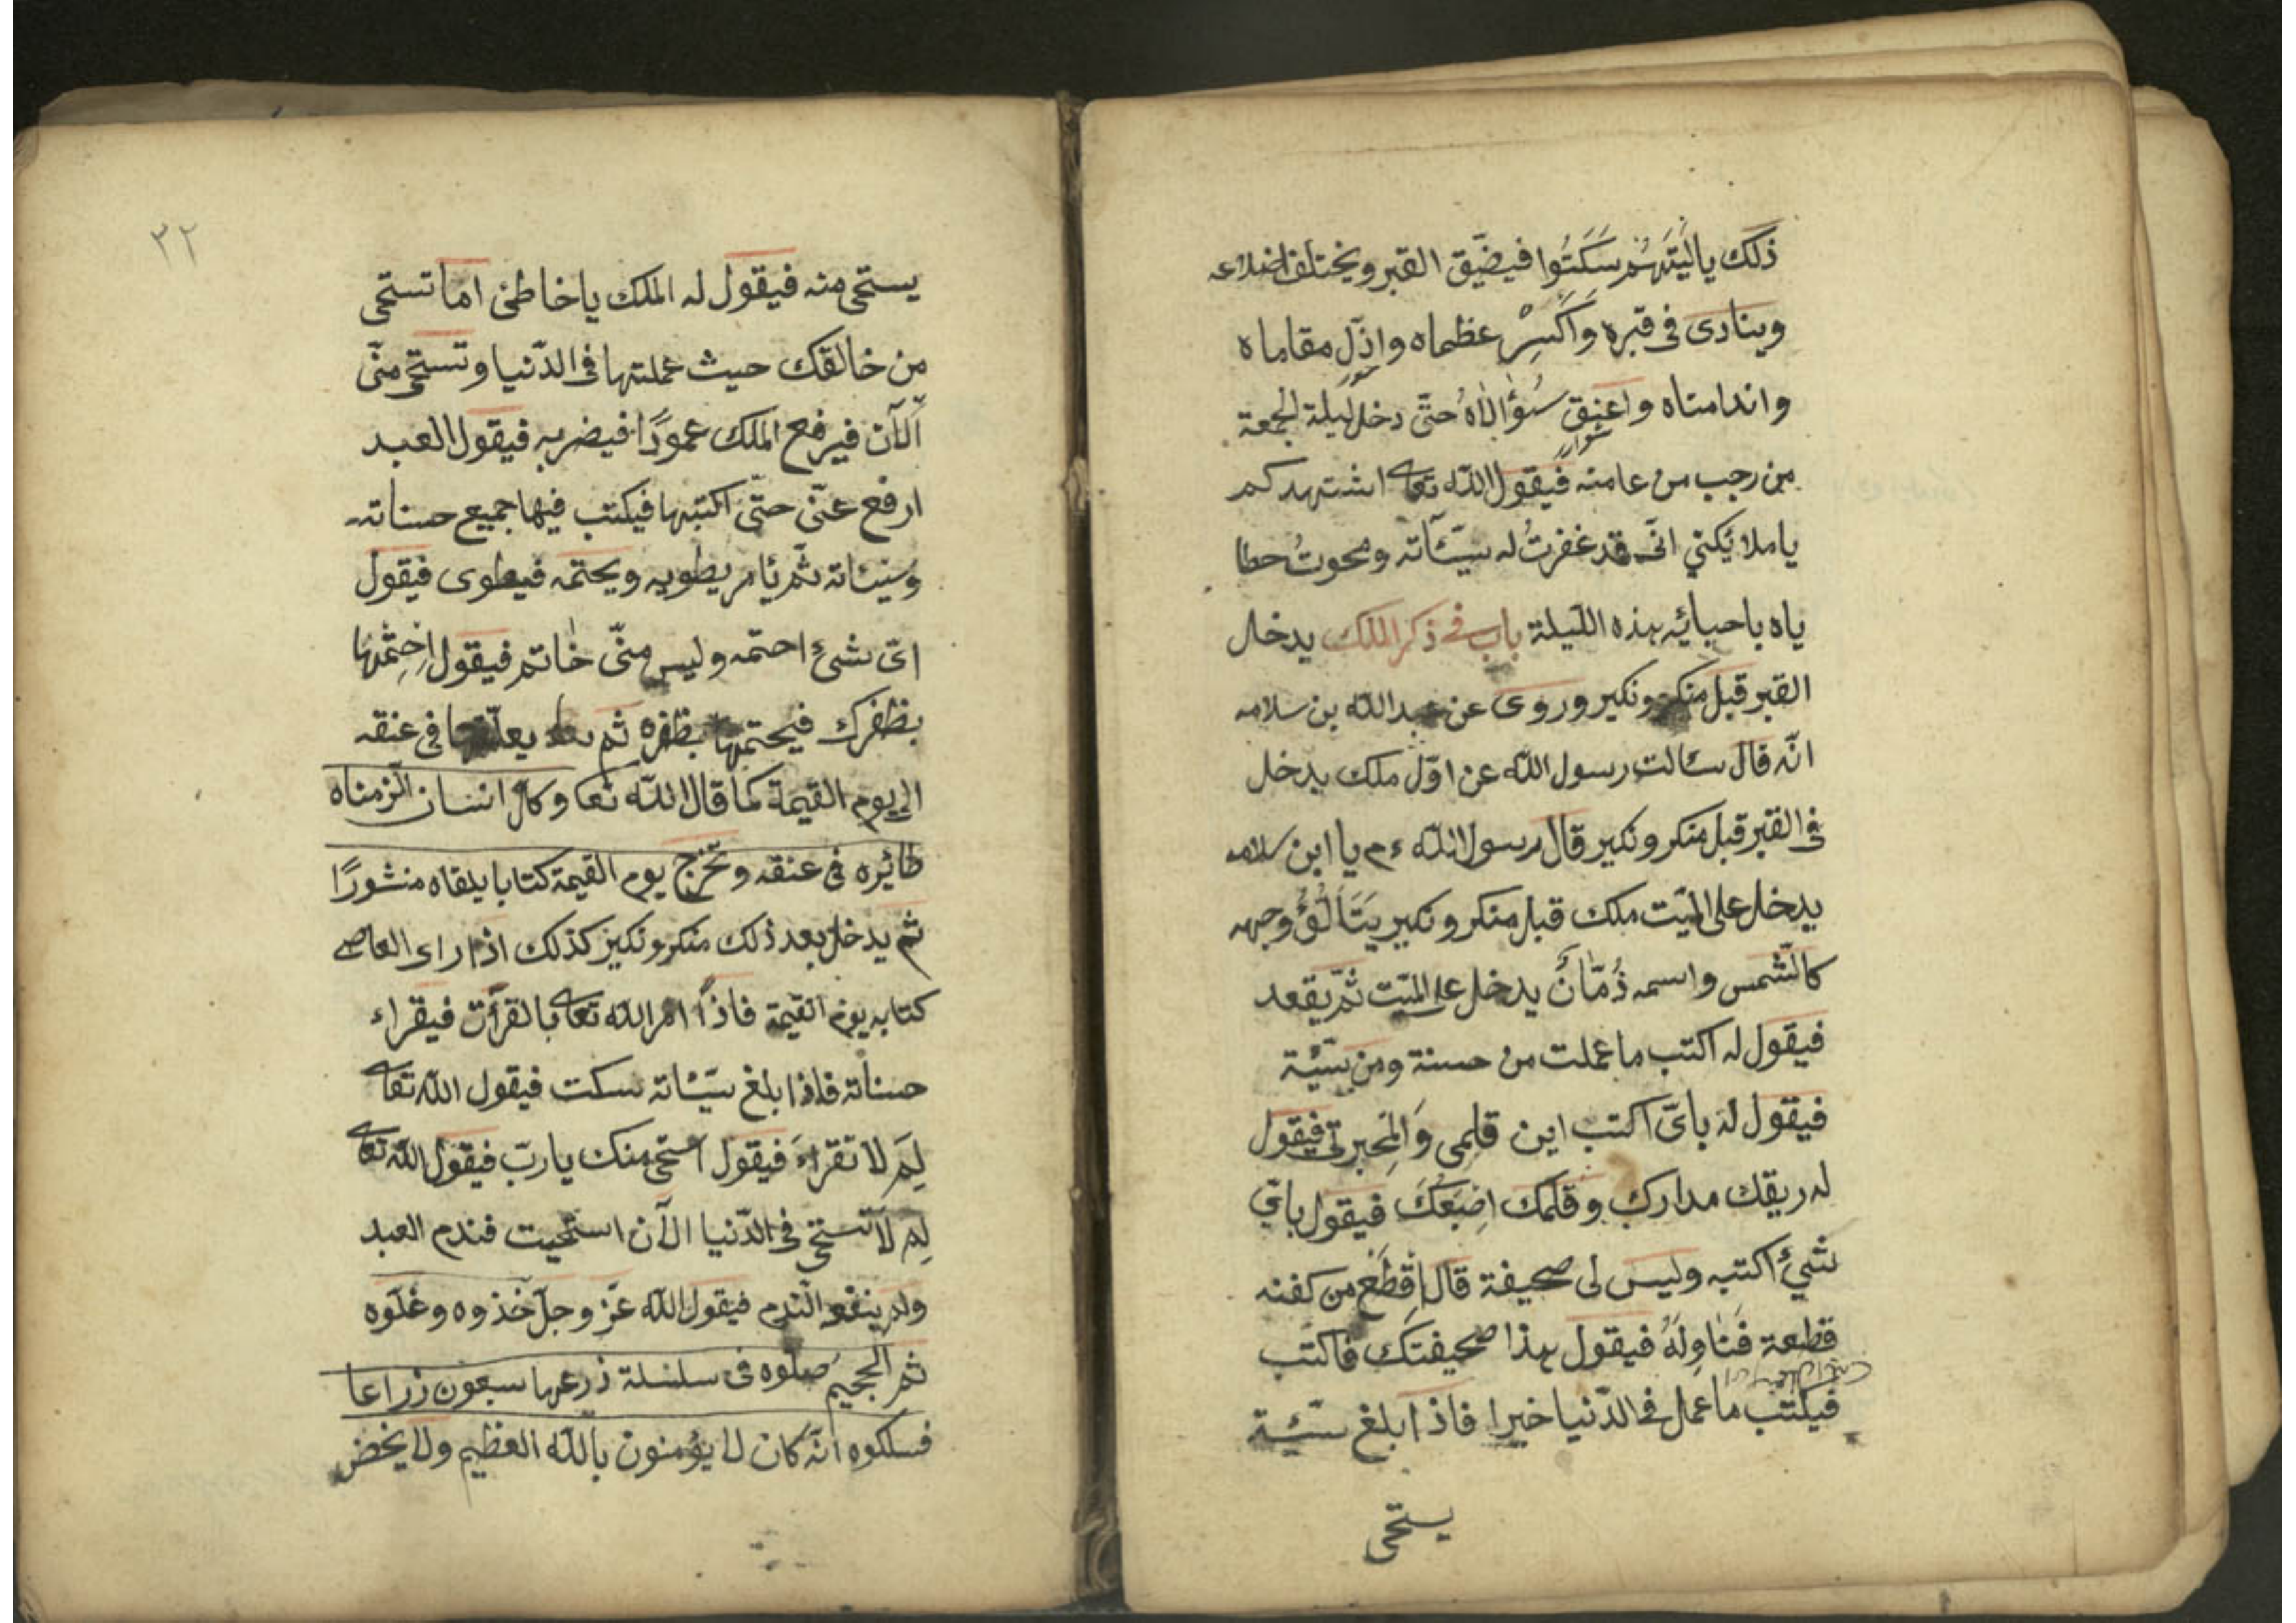 ذلك ياليتهم سَكَتُوا فيضّيق القبر ويختلف اضلاعه
وينادى فى قبره وَاكَسِرْ عظماه واذلّ مقاماه
واندامتاه واعنق سُؤالاهُ حتّى دخل ليلة الجمعة
من رجب من عامنه فيقول اللّه تعا اشتهدكم
ياملائكتي انّى قد غفرتُ له سيّئاته ومحوتُ خطا
ياه باحبائه هذه الليلة باب فى ذكر الملك يدخل
القبر قبل منكر ونكير وروى عن عبد اللّه بن سلامه
انّه قال سئالت رسول اللّه عن اوّل ملك يدخل
فى القبر قبل منكر ونكير قال رسول اللّه ءم يا ابن سلامه
يدخل على الميّت ملك قبل منكر ونكير يَتَالَؤُلؤُ وجهه
كالشّمس واسمه ذُمّانَ يدخل على الميّت ثمّ يقعد
فيقول له اكتب ما عملت من حسنة ومن سيّئة
فيقول له باىّ اكتب اين قلمى وَالمِحبرتى فيقول
له ريقك مدارك وقلمك اِضبَعُكَ فيقول باىّ
شئ اكتبه وليس لى صحيفة قال اِقْطَعْ من كفنه
قطعة فَناوِلَهُ فيقول هذا صحيفتك فاكتب
فيكتب ما عمل فى الدّنيا خيرا فاذا بلغ سيّئة
يستحى
٣٢
يستحى منه فيقول له الملك يا خاطئ اما تستحى
من خالقك حيث عملتها فى الدّنيا وتستحى منّى
اَلآن فيرفع الملك عمودًا فيضربه فيقول العبد
ارفع عنّى حتّى اكتبها فيكتب فيها جميع حسناته
وسيئاته ثمّ يأمر يطويه ويختمه فيطوى فيقول
اىّ شئ اختمه وليس منّى خاتم فيقول اِختِمْها
بظفرك فيختمها بظفره ثم يعلّقها فى عنقه
الى يوم القيمة كما قال اللّه تعا وكل انسان الزمناه
طائره فى عنقه وتخرج يوم القيمة كتابا يلقاه منشورًا
ثم يدخل بعد ذلك منكر ونكير كذلك اذا راى العاصى
كتابه يوم القيمة فاذا امر اللّه تعا بالقرأت فيقراء
حسناته فاذا بلغ سيّئاته سكت فيقول اللّه تعا
لِمَ لا تقراءَ فيقول استحى منك يا ربّ فيقول اللّه تعا
لِمَ لا تستحى فى الدّنيا الآن استحيت فندم العبد
ولم ينفع النّدم فيقول اللّه عزّ وجلّ خذوه وغلّوه
ثم الجحيم صلّوه فى سلسلة ذرعها سبعون زراعا
فسلكوه انّه كان لا يؤمنون باللّه العظيم ولا يحض